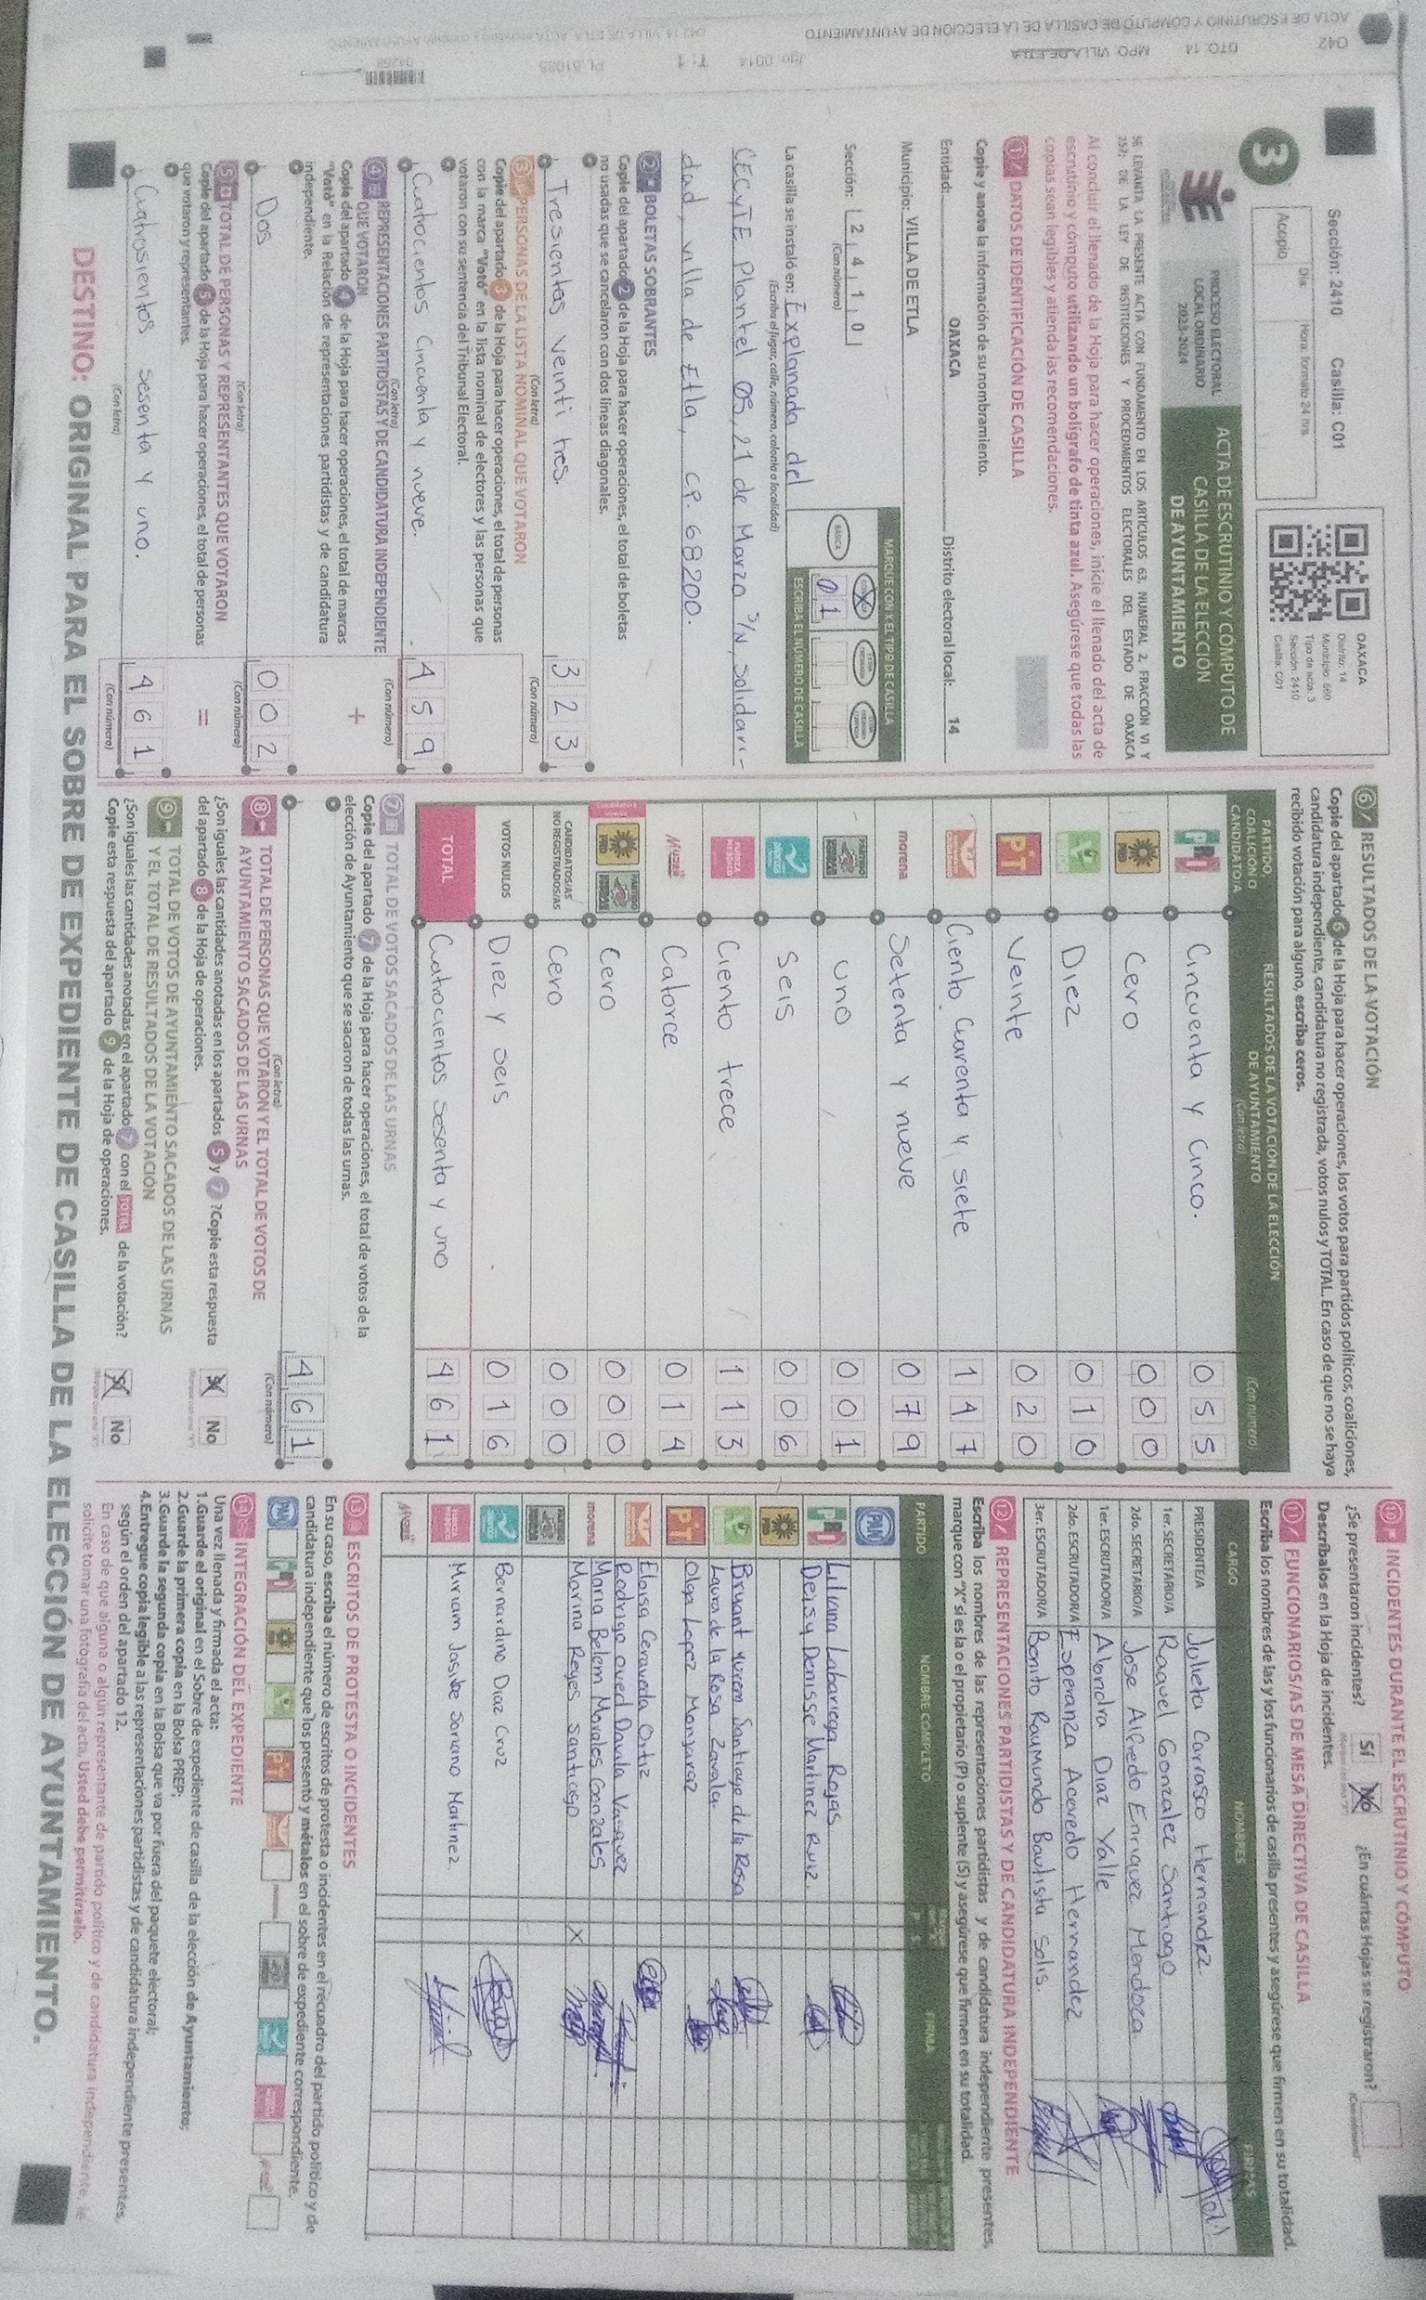 Sección: 2410 Casilla: C01
Acopio
Día:
Hora: formato 24 hrs
OAXACA
Distrito: 14
Municipio: 560
Tipo de acta: 3
Sección: 2410
Casilla: C01
3
PROCESO ELECTORAL
LOCAL ORDINARIO
2023-2024
ACTA DE ESCRUTINIO Y CÓMPUTO DE
CASILLA DE LA ELECCIÓN
DE AYUNTAMIENTO
SE LEVANTA LA PRESENTE ACTA CON FUNDAMENTO EN LOS ARTÍCULOS 63, NUMERAL 2, FRACCIÓN VI Y
DE LA LEY DE INSTITUCIONES Y PROCEDIMIENTOS ELECTORALES DEL ESTADO DE OAXACA
Al concluir el llenado de la Hoja para hacer operaciones, inicie el llenado del acta de
escrutinio y cómputo utilizando un bolígrafo de tinta azul. Asegúrese que todas las
copias sean legibles y atienda las recomendaciones.
1 DATOS DE IDENTIFICACIÓN DE CASILLA
Copie y anote la información de su nombramiento.
Entidad: OAXACA Distrito electoral local: 14
Municipio: VILLA DE ETLA
MARQUE CON X EL TIPO DE CASILLA
BÁSICA
X
Sección: 2 4 1 0
(Con número)
0 1
ESCRIBA EL NÚMERO DE CASILLA
La casilla se instaló en: Explanada del
(Escriba el lugar, calle, número, colonia o localidad)
CECYTE Plantel 08, 21 de Marzo S/N, Solidari-
dad, villa de Etla, CP. 68200.
2 BOLETAS SOBRANTES
Copie del apartado 2 de la Hoja para hacer operaciones, el total de boletas
no usadas que se cancelaron con dos líneas diagonales.
Tresientas veinti tres. 3 2 3
(Con letra) (Con número)
3 PERSONAS DE LA LISTA NOMINAL QUE VOTARON
Copie del apartado 3 de la Hoja para hacer operaciones, el total de personas
con la marca "Votó" en la lista nominal de electores y las personas que
votaron con su sentencia del Tribunal Electoral.
Cuatrocientos Cincuenta y nueve. 4 5 9
(Con letra) (Con número)
4 REPRESENTACIONES PARTIDISTAS Y DE CANDIDATURA INDEPENDIENTE
QUE VOTARON
Copie del apartado 4 de la Hoja para hacer operaciones, el total de marcas
"Votó" en la Relación de representaciones partidistas y de candidatura
independiente.
+
Dos 0 0 2
(Con letra) (Con número)
5 TOTAL DE PERSONAS Y REPRESENTANTES QUE VOTARON
Copie del apartado 5 de la Hoja para hacer operaciones, el total de personas
que votaron y representantes.
=
Cuatrosientos sesenta y uno. 4 6 1
(Con letra) (Con número)
6 RESULTADOS DE LA VOTACIÓN
Copie del apartado 6 de la Hoja para hacer operaciones, los votos para partidos políticos, coaliciones,
candidatura independiente, candidatura no registrada, votos nulos y TOTAL. En caso de que no se haya
recibido votación para alguno, escriba ceros.
PARTIDO,
COALICIÓN O
CANDIDATO/A
RESULTADOS DE LA VOTACIÓN DE LA ELECCIÓN
DE AYUNTAMIENTO
(Con letra) (Con número)
PRI Cincuenta y Cinco. 0 5 5
PRD Cero 0 0 0
Diez 0 1 0
PT Veinte 0 2 0
Ciento Cuarenta y siete 1 4 7
morena Setenta y nueve 0 7 9
uno 0 0 1
Seis 0 0 6
FUERZA MÉXICO Ciento trece 1 1 3
Mujer Catorce 0 1 4
PRD Cero 0 0 0
CANDIDATOS/AS
NO REGISTRADOS/AS Cero 0 0 0
VOTOS NULOS Diez y seis 0 1 6
TOTAL Cuatrocientos sesenta y uno 4 6 1
7 TOTAL DE VOTOS SACADOS DE LAS URNAS
Copie del apartado 7 de la Hoja para hacer operaciones, el total de votos de la
elección de Ayuntamiento que se sacaron de todas las urnas.
4 6 1
(Con letra) (Con número)
8 TOTAL DE PERSONAS QUE VOTARON Y EL TOTAL DE VOTOS DE
AYUNTAMIENTO SACADOS DE LAS URNAS
¿Son iguales las cantidades anotadas en los apartados 5 y 7 ?Copie esta respuesta
del apartado 8 de la Hoja de operaciones.
Sí No
9 TOTAL DE VOTOS DE AYUNTAMIENTO SACADOS DE LAS URNAS
Y EL TOTAL DE RESULTADOS DE LA VOTACIÓN
¿Son iguales las cantidades anotadas en el apartado 7 con el TOTAL de la votación?
Copie esta respuesta del apartado 9 de la Hoja de operaciones.
Sí No
10 INCIDENTES DURANTE EL ESCRUTINIO Y CÓMPUTO
¿Se presentaron incidentes? Sí No ¿En cuántas Hojas se registraron?
Descríbalos en la Hoja de incidentes.
11 FUNCIONARIOS/AS DE MESA DIRECTIVA DE CASILLA
Escriba los nombres de las y los funcionarios de casilla presentes y asegúrese que firmen en su totalidad.
CARGO NOMBRES FIRMAS
PRESIDENTE/A Julieta Carrasco Hernandez.
1er. SECRETARIO/A Raquel Gonzalez Santiago
2do. SECRETARIO/A Jose Alfredo Enriquez Mendoza
1er. ESCRUTADOR/A Alondra Diaz Valle
2do. ESCRUTADOR/A Esperanza Acevedo Hernandez
3er. ESCRUTADOR/A Benito Raymundo Bautista Solis.
12 REPRESENTACIONES PARTIDISTAS Y DE CANDIDATURA INDEPENDIENTE
Escriba los nombres de las representaciones partidistas y de candidatura independiente presentes,
marque con "X" si es la o el propietario (P) o suplente (S) y asegúrese que firmen en su totalidad.
PARTIDO NOMBRE COMPLETO P S FIRMA
PAN
Liliana Labariega Rojas
PRI Deisy Denisse Martinez Ruiz.
PRD
Bryant Yurem Santiago de la Rosa
Laura de la Rosa Zavala.
PT Olga Lopez Manzurez
Eloisa Cervantes Ortiz
Rodrigo oved Davila Vasquez
morena Maria Belem Morales Gonzales
Marina Reyes Santiago X
Bernardino Diaz Cruz
Miriam Josibe Soriano Martinez
Mujer
13 ESCRITOS DE PROTESTA O INCIDENTES
En su caso, escriba el número de escritos de protesta o incidentes en el recuadro del partido político y de
candidatura independiente que los presentó y métalos en el sobre de expediente correspondiente.
PAN PRI PRD PT
14 INTEGRACIÓN DEL EXPEDIENTE
Una vez llenada y firmada el acta:
1.Guarde el original en el Sobre de expediente de casilla de la elección de Ayuntamiento;
2.Guarde la primera copia en la Bolsa PREP;
3.Guarde la segunda copia en la Bolsa que va por fuera del paquete electoral;
4.Entregue copia legible a las representaciones partidistas y de candidatura independiente presentes,
según el orden del apartado 12.
En caso de que alguna o algún representante de partido político y de candidatura independiente, le
solicite tomar una fotografía del acta, Usted debe permitírselo.
DESTINO: ORIGINAL PARA EL SOBRE DE EXPEDIENTE DE CASILLA DE LA ELECCIÓN DE AYUNTAMIENTO.
ACTA DE ESCRUTINIO Y COMPUTO DE CASILLA DE LA ELECCION DE AYUNTAMIENTO
042 DTO. 14 MPO. VILLA DE ETLA